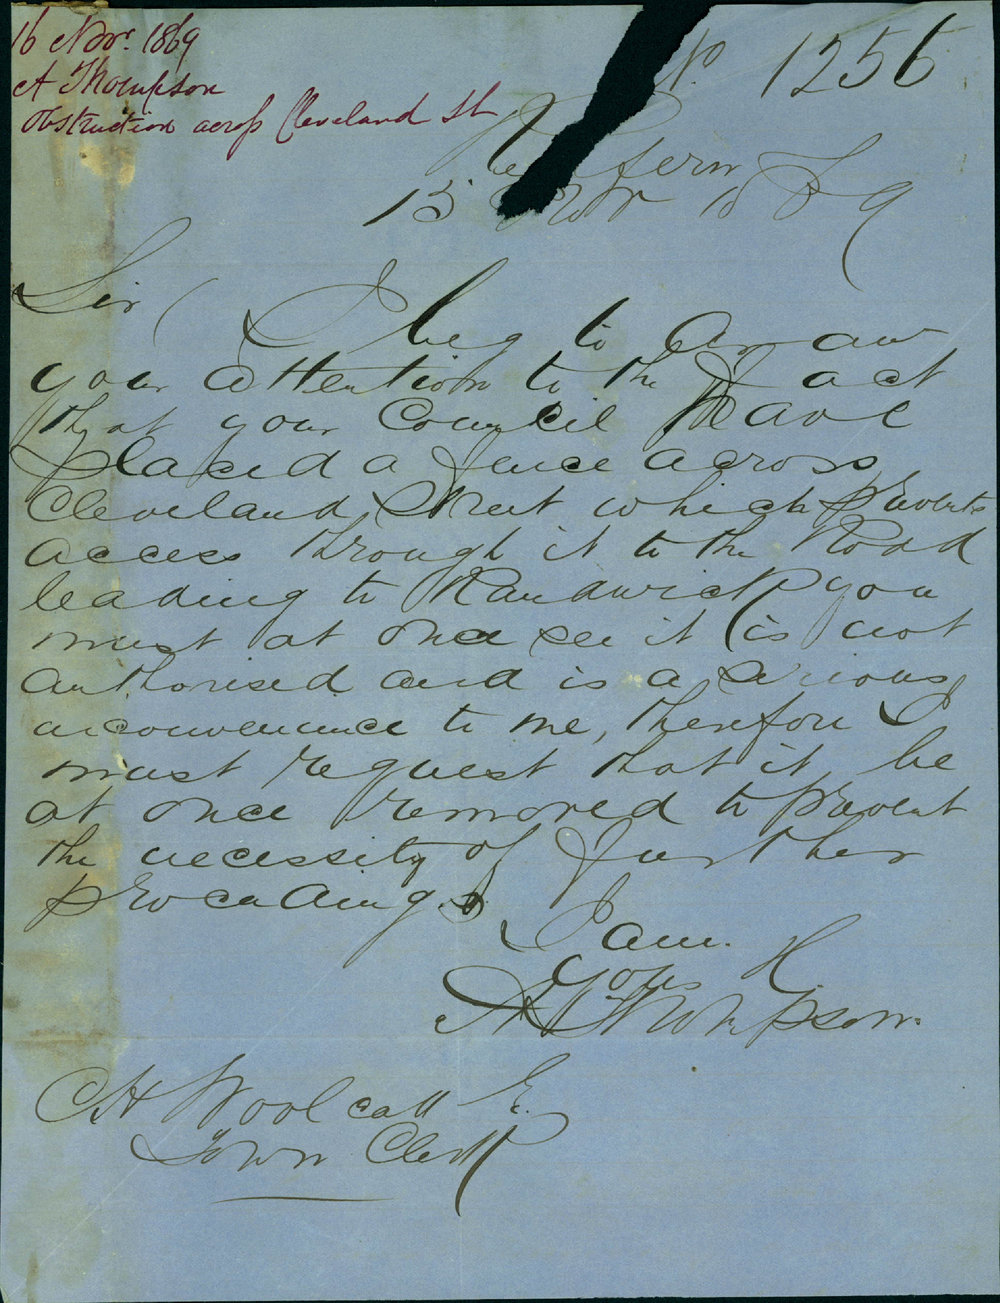 16 Novr. 1869
A Thompson
Obstruction across Cleveland St
No 1256
Redfern
15 Novr 1869
Sir
I beg to draw
your attention to the Fact
that your Council Have
placed a fence across
Cleveland Street which prevents
access through it to the Road
leading to Randwick you
must at once see it is not
authorised and is a serious
inconvenience to me, therefore I
must request that it be
at once removed to prevent
the necessity of further
proceedings.
I am.
Yours
A Thompson.
CH Woolcott E.
Town Clerk